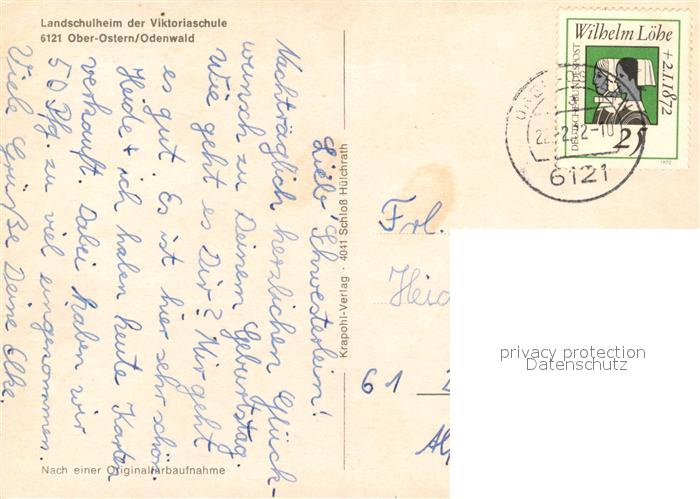 Landschulheim der Viktoriaschule
6121 Ober-Ostern/Odenwald
Lieb' Schwesterlein!
Nachträglich herzlichen Glück-
wunsch zu Deinem Geburtstag.
Wie geht es Dir? Mir geht
es gut. Es ist hier sehr schön.
Heide + ich haben heute Karten
verkauft. Dabei haben wir
50 Pfg. zu viel eingenommen.
Viele Grüße Deine Elke.
Nach einer Originalfarbaufnahme
Krapohl-Verlag · 4041 Schloß Hülchrath
Wilhelm Löhe
+2.1.1872
DEUTSCHE BUNDESPOST
25
1972
6121
Frl.
Heid
61
privacy protection
Datenschutz